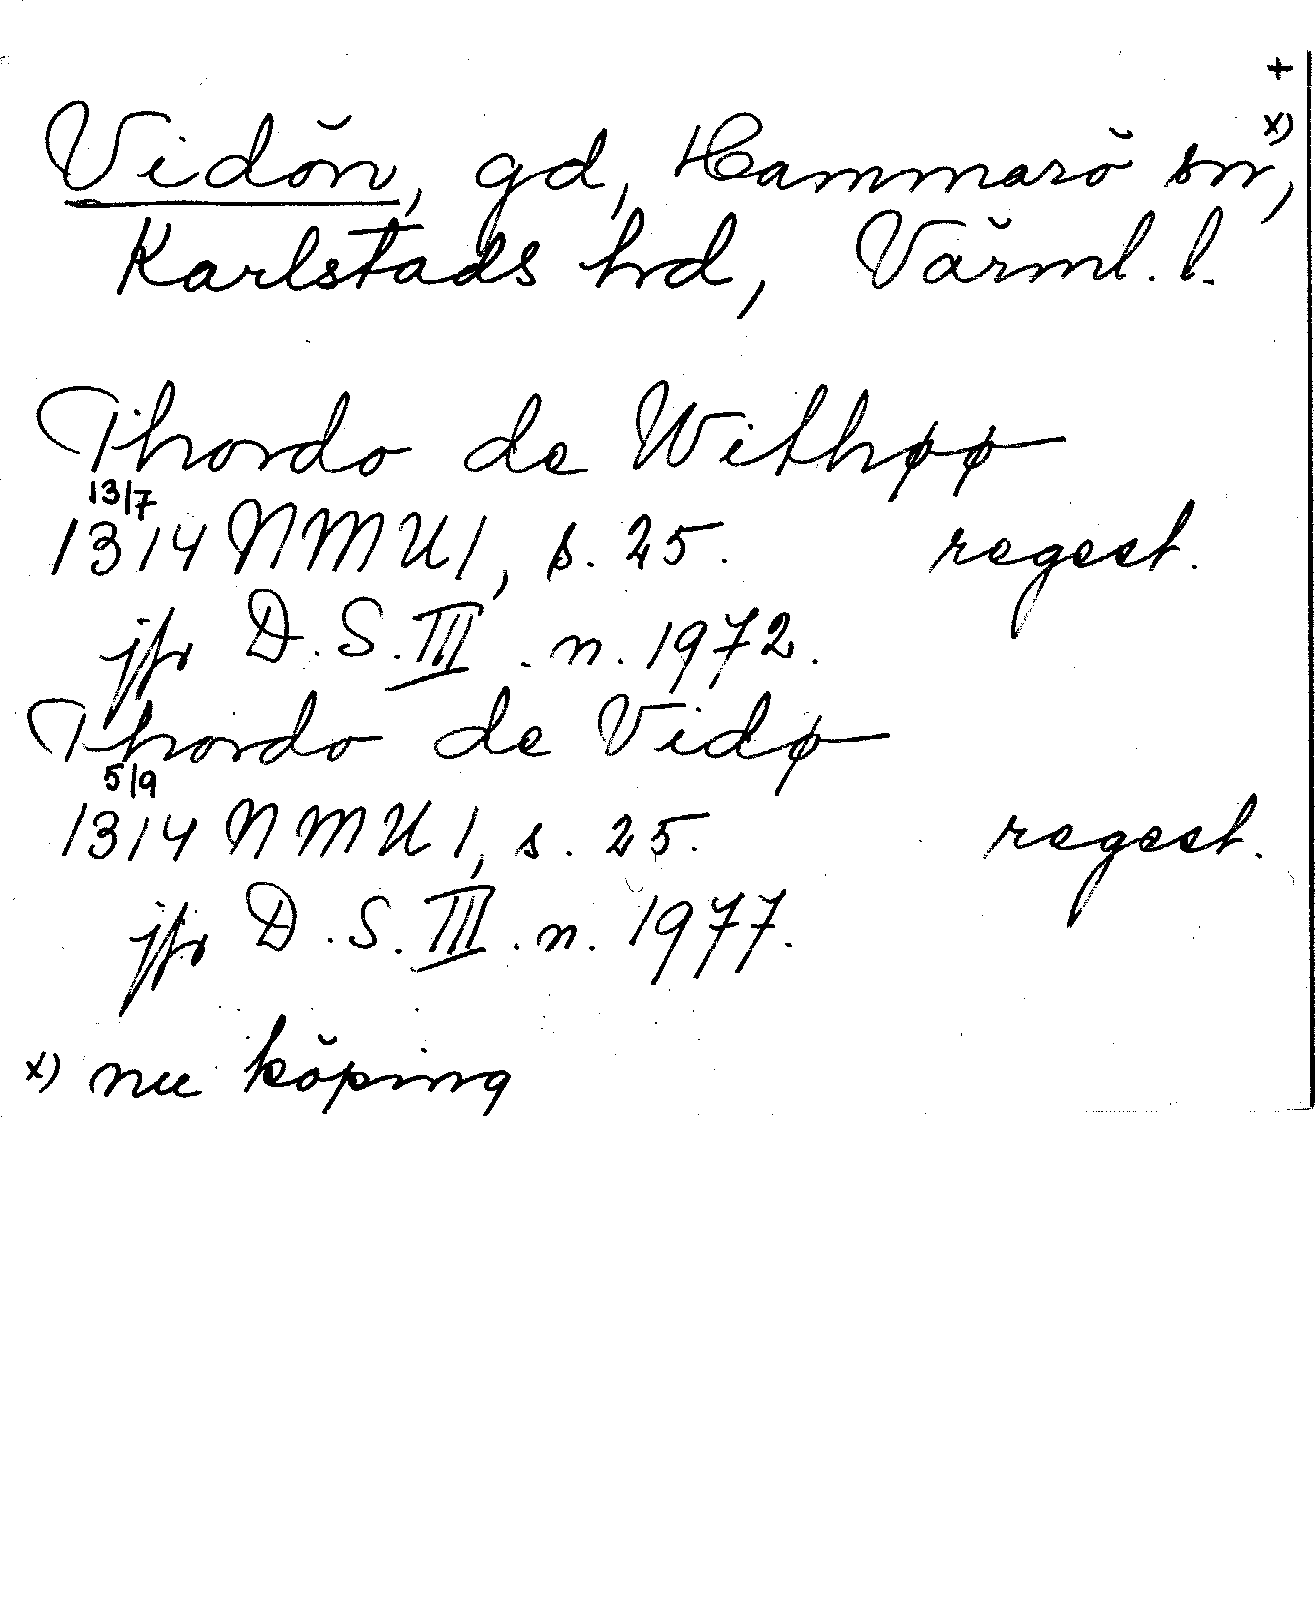 +
Vidön, gd, Hammarö sn, x)
Karlstads hd, Värml. l.
Thordo de Withøø
13/7
1314 NMU 1, s. 25. regest.
jfr D. S. III. n. 1972.
Thordo de Vidø
5/9
1314 NMU 1, s. 25. regest.
jfr D. S. III. n. 1977.
x) nu köping